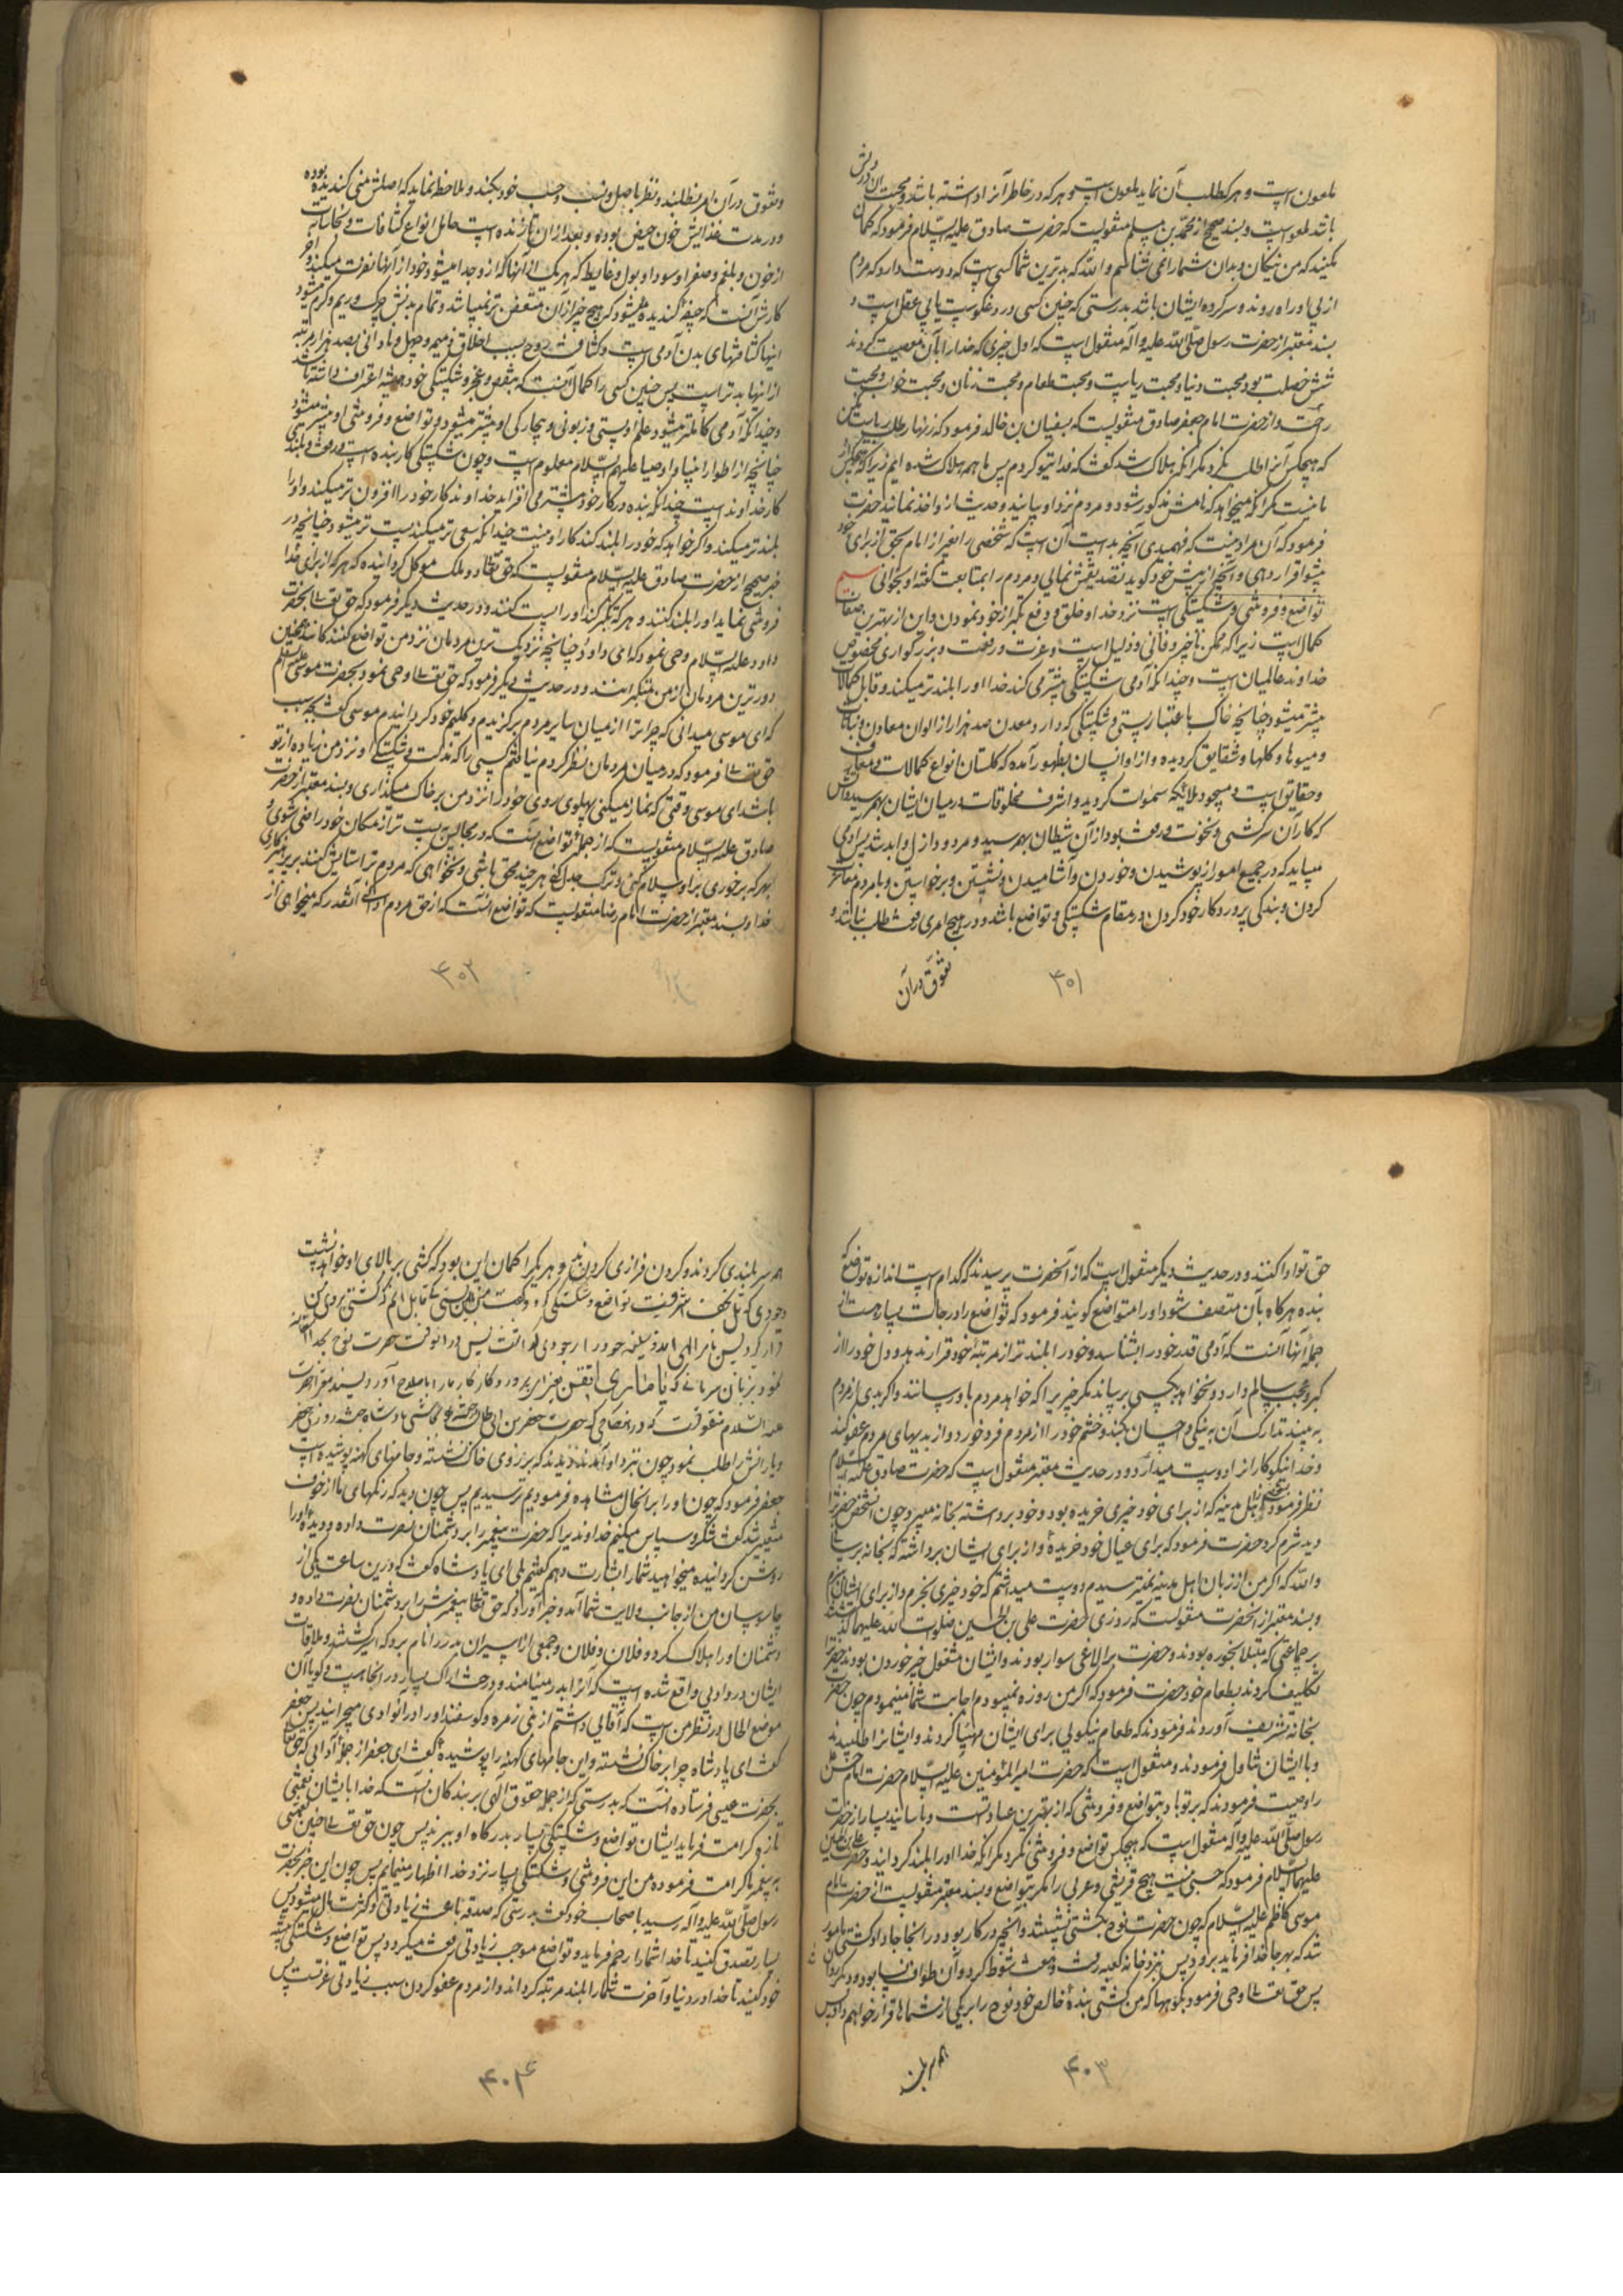 ملعون است و هر که طلب آن نماید ملعون است و هر که در خاطر آنرا داشته باشد و محبت آن در دلش
باشد ملعونست و بسند صحیح از محمد بن مسلم منقولست که حضرت صادق علیه السلام فرمود که گمان
میکنید که من نیکان و بدان شما را نمی شناسم والله که بدترین شما کسی است که دوست دارد که مردم
از پی او راه روند و سرکرده ایشان باشد بدرستی که چنین کسی دروغگوست یا بی عقل است و
بسند معتبر از حضرت رسول صلی الله علیه و آله منقول است که اول چیزی که خدا را بآن معصیت کردند
شش خصلت بود محبت دنیا و محبت ریاست و محبت طعام و محبت زنان و محبت خواب و محبت
راحت و از حضرت امام جعفر صادق منقولست که بسفیان بن خالد فرمود که زنهار طلب ریاست مکن
که هیچکس آنرا طلب نکرد مگر آنکه هلاک شد گفت که فدای تو گردم پس ما همه هلاک شده ایم زیرا که هیچکس از
ما نیست مگر آنکه میخواهد که نامش مذکور شود و مردم نزد او بیایند و حدیث از او اخذ نمایند حضرت
فرمود که آن مراد نیست که فهمیدی آنچه بد است آن است که شخصی را بغیر از امام بحق از برای خود
پیشوا قرار دهی و آنچه از پیش خود گوید تصدیقش نمائی و مردم را بمتابعت گفته او بخوانی سیم
تواضع و فروتنی و شکستگی است نزد خدا و خلق و رفع تکبر از خود نمودن و این از بهترین صفات
کمال است زیرا که ممکن ناچیز و فانی و ذلیل است و عزت و رفعت و بزرگواری مخصوص
خداوند عالمیان است و چندانکه آدمی شکستگی بیشتر می کند خدا او را بلندتر میکند و قابل کمالات
بیشتر میشود چنانچه خاک باعتبار پستی و شکستگی که دارد معدن صد هزار از الوان معادن و نباتات
و میوها و گلها و شقایق گردیده و از او انسان بظهور آمده که گلستان انواع کمالات و معارف
و حقایق است و مسجود ملائکه سموات گردید و اشرف مخلوقات در میان ایشان بهم رسید و آتش
که کار آن سرکشی و نخوت و رفعت بود از آن شیطان بهم رسید و مردود ازل و ابد شد پس آدمی
میباید که در جمیع امور از پوشیدن و خوردن و آشامیدن و نشستن و برخواستن و با مردم معاشرت
کردن و بندگی پروردگار خود کردن در مقام شکستگی و تواضع باشد و در هیچ امری رفعت طلب نباشد و
تفوق در آن
۴۰۱
و تفوق در آن امر نطلبد و نظر باصل و نسب و حسب خود بکند و ملاحظه نماید که اصلش منی گندیده بوده
و در مدت غذایش خون حیض بوده و بعد از آن تا زنده است حامل انواع کثافات و نجاسات
از خون و بلغم و صفرا و سودا و بول و غایط که هر یک از آنها که از او جدا میشود خود از آنها نفرت میکند و آخر
کارش آنست که جیفه گندیده میشود که هیچ چیز از آن متعفن تر نمیباشد و تمام بدنش چرک و ریم و کرم میشود
اینها کثافتهای بدن آدمی است و کثافت روح بسبب اخلاق ذمیمه و جهل و نادانی بصد هزار مرتبه
از اینها بدتر است پس چنین کسی را کمال آنست که بنقص و عجز و شکستگی خود همیشه اعتراف داشته باشد
و چندانکه آدمی کاملتر میشود علم او بپستی و زبونی و بیچارگی او بیشتر میشود و تواضع و فروتنی او بیشتر میشود
چنانچه از اطوار انبیا و اوصیا علیهم السلام معلوم است و چون شکستگی کار بنده است و رفعت و بلندی
کار خداوند است چندانکه بنده در کار خود بیشتر می افزاید خداوند کار خود را افزون تر میکند و او را
بلندتر میکند و اگر خواهد که خود را بلند کند کار او نیست چندانکه سعی تر میکند پست تر میشود چنانچه در
خبر صحیح از حضرت صادق علیه السلام منقولست که حق تعالی دو ملک موکل گردانیده که هر که از برای خدا
فروتنی نماید او را بلند کنند و هر که تکبر کند او را پست کنند و در حدیث دیگر فرمود که حق تعالی بحضرت
داود علیه السلام وحی نمود که ای داود چنانچه نزدیک ترین مردمان نزد من تواضع کنندگانند همچنین
دورترین مردمان از من متکبرانند و در حدیث دیگر فرمود که حق تعالی وحی نمود بحضرت موسی علیه السلام
که ای موسی میدانی که چرا ترا از میان سایر مردم برگزیدم و کلیم خود گردانیدم موسی گفت بچه سبب
حق تعالی فرمود که در میان مردمان نظر کردم نیافتم کسی را که مذلت و شکستگی او نزد من زیاده از تو
باشد ای موسی وقتی که نماز میکنی پهلوی روی خود را نزد من بر خاک میگذاری و بسند معتبر از حضرت
صادق علیه السلام منقولست که از جمله تواضع آنست که در مجالس پست تر از مکان خود راضی شوی و
بهر که برخوری بر او سلام کنی و ترک جدل کنی هر چند محق باشی و نخواهی که مردم ترا ستایش کنند بر پرهیزکاری
خدا و بسند معتبر از حضرت امام رضا منقولست که تواضع آنست که از حق مردم ادا کنی آنقدر که میخواهی از
۴۰۲
حق تو ادا کنند و در حدیث دیگر منقول است که از آنحضرت پرسیدند که کدام است اندازه تواضع که
بنده هرگاه بآن متصف شود او را متواضع گویند فرمود که تواضع را درجات بسیار هست از
جمله آنها آنست که آدمی قدر خود را بشناسد و خود را بلندتر از مرتبه خود قرار ندهد و دل خود را از
کبر و عجب سالم دارد و نخواهد بکسی برساند مگر چیزیرا که خواهد مردم باو رسانند و اگر بدی از مردم
به بیند تدارک آن به نیکی و احسان بکند و خشم خود را از مردم فرو خورد و از بدیهای مردم عفو کند
و خدا نیکوکارانرا دوست میدارد و در حدیث معتبر منقول است که حضرت صادق علیه السلام
نظر فرمود بشخصی از اهل مدینه که از برای خود چیزی خریده بود و خود برداشته بخانه میبرد چون آنشخص حضرترا
دید شرم کرد حضرت فرمود که برای عیال خود خریده و از برای ایشان برداشته که بخانه برسانی
والله که اگر من از زبان اهل مدینه نمیترسیدم دوست میداشتم که خود چیزی بخرم و از برای ایشان برم
و بسند معتبر از آنحضرت منقولست که روزی حضرت علی بن الحسین صلوات الله علیهما گذشتند
بر جماعتی که مبتلا بخوره بودند و حضرت بر الاغی سوار بودند و ایشان مشغول چیز خوردن بودند حضرترا
تکلیف کردند بطعام خود حضرت فرمود که اگر من روزه نمیبودم اجابت شما مینمودم چون حضرت
بخانه تشریف آوردند فرمودند که طعام نیکوئی برای ایشان مهیا کردند و ایشانرا طلبیدند
و با ایشان تناول فرمودند و منقول است که حضرت امیر المؤمنین علیه السلام حضرت امام حسن
را وصیت فرمودند که بر تو باد بتواضع و فروتنی که از بهترین عبادتست و باسانید بسیار از حضرت
رسول صلی الله علیه و آله منقول است که هیچکس تواضع و فروتنی نکرد مگر آنکه خدا او را بلند گردانید و حضرت علی بن الحسین
علیهما السلام فرمود که حسبی نیست هیچ قریشی و عربی را مگر بتواضع و بسند معتبر منقولست از حضرت امام
موسی کاظم علیه السلام که چون حضرت نوح بکشتی نشستند و آنچه در کار بود در آنجا جا داد کشتی مامور
شد که بهر جا خدا فرماید برود پس نزد خانه کعبه رفت و هفت شوط کرد و آن طواف نسا بود
پس حق تعالی وحی فرمود بکوهها که من کشتی بنده خالص خود نوح را بر یکی از شماها قرار خواهم داد پس
۴۰۳
همه سر بلندی کردند و گردن فرازی کردند و هر یک را گمان این بود که کشتی بر بالای او خواهد نشست
نمود بزبان سریانی که یا ماریا اتقن یعنی ای پروردگار کار ما را باصلاح آور و بسند معتبر از حضرت
علیه السلام منقولست که حضرت جعفر بن ابی طالب نجاشی پادشاه حبشه روزی جعفر
و یارانش را طلب نمود چون بنزد او آمدند دیدند که بر روی خاک نشسته و جامهای کهنه پوشیده است
جعفر فرمود که چون او را بر آنحال مشاهده فرمودیم ترسیدیم پس چون دید که رنگهای ما از خوف
متغیر شد گفت شکر و سپاس میکنم خداوندیرا که حضرت پیغمبر را بر دشمنان نصرت داده و دیده او را
روشن گردانیده میخواهید شما را بشارت دهم گفتیم بلی ای پادشاه گفت که درین ساعت یکی از
جاسوسان من از جانب ولایت شما آمد و خبر آورد که حق تعالی پیغمبرش را بر دشمنان نصرت داده و
دشمنان او را هلاک کرد و فلان و فلان و فلان و جمعی اسیران
ایشان در وادی واقع شده است که آنرا بدر مینامند و درخت اراک بسیار در آنجا هست و گویا آن
موضع الحال در نظر من است که آقائی داشتم از بنی ضمره و گوسفند او را در آنوادی میچرانیدم پس جعفر
گفت ای پادشاه چرا بر خاک نشسته و این جامهای کهنه را پوشیده گفت ای جعفر از جمله آدابی که حق تعالی
بحضرت عیسی فرستاده آنست که بدرستی که از جمله حقوق الهی بر بندگان آنست که خدا با ایشان نعمتی
تازه کرامت فرماید ایشان تواضع و شکستگی بسیار بدرگاه او ببرند پس چون حق تعالی چنین نعمتی
بر پیغمبر ما کرامت فرموده من این فروتنی و شکستگی بسیار نزد خدا اظهار مینمایم پس چون این خبر بحضرت
رسول صلی الله علیه و آله رسید باصحاب خود گفت بدرستی که صدقه باعث زیادتی و کثرت مال میشود پس
بسیار تصدق کنید تا خدا شما را رحم فرماید و تواضع موجب زیادتی رفعت میگردد پس تواضع و شکستگی پیشه
خود کنید تا خدا در دنیا و آخرت شما را بلند مرتبه گرداند و از مردم عفو کردن سبب زیادتی عزتست پس
۴۰۴